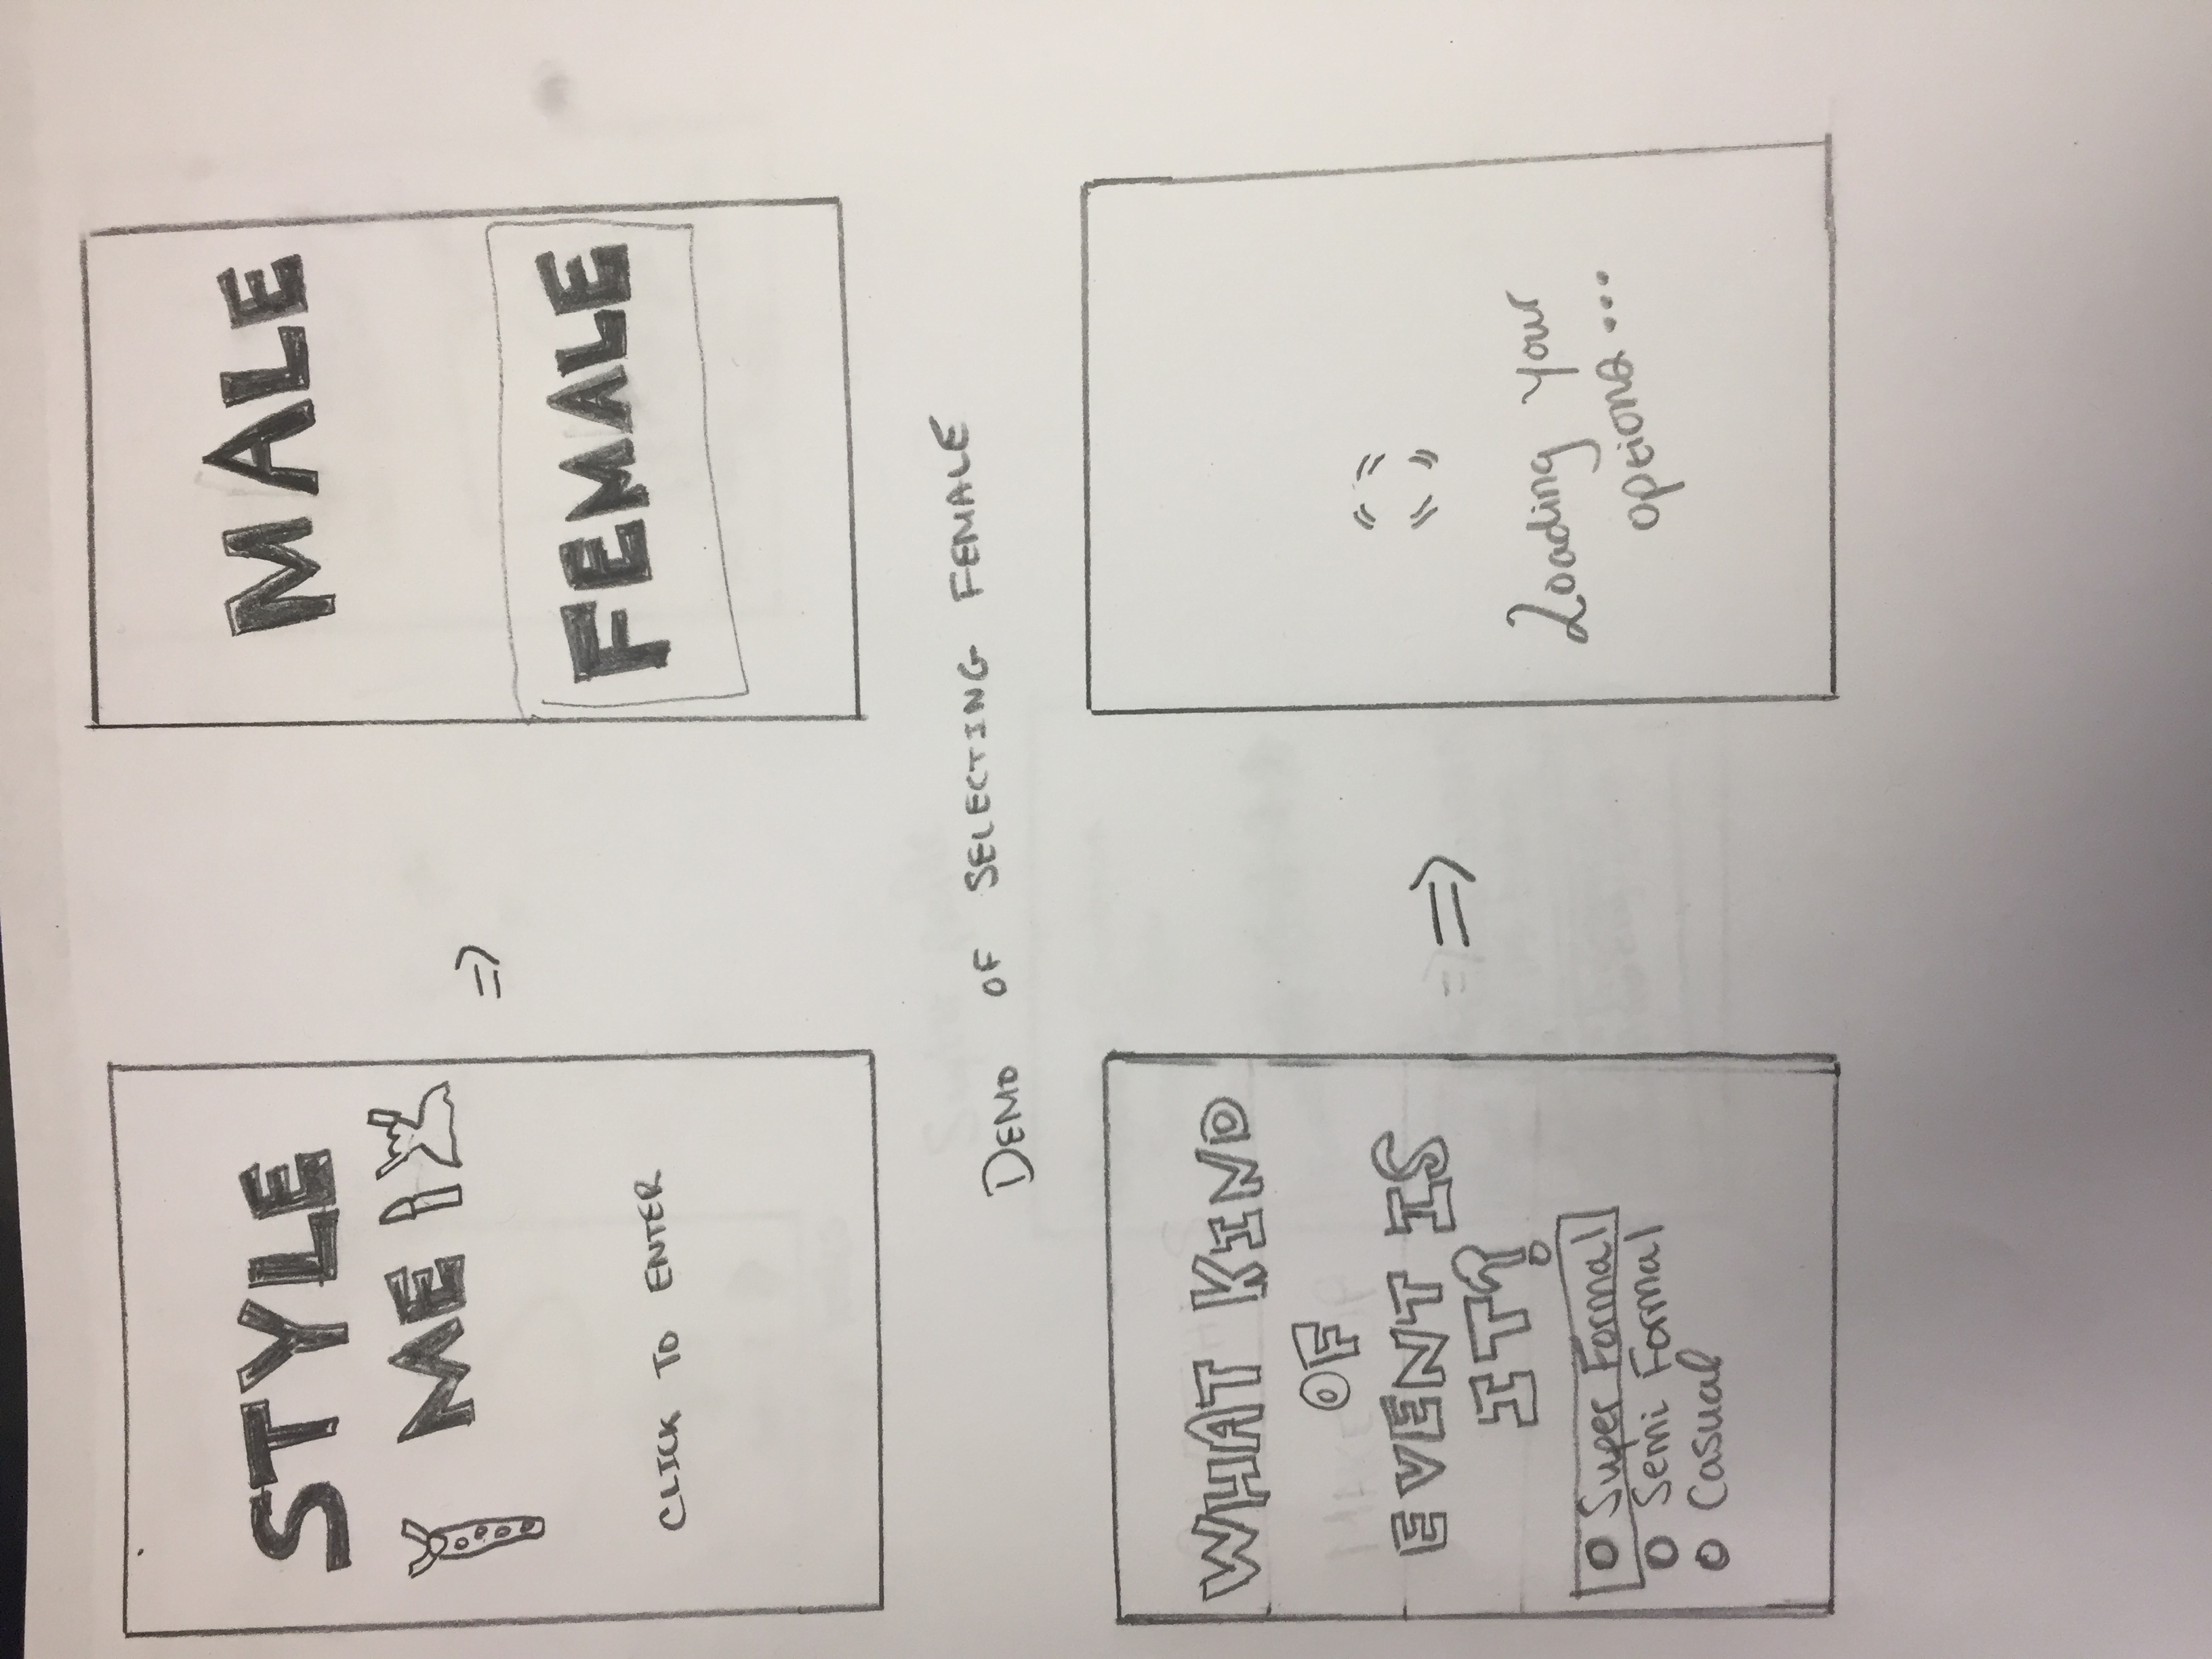 STYLE
ME
CLICK TO ENTER
⇒
MALE
FEMALE
DEMO OF SELECTING FEMALE
WHAT KIND
OF
EVENT IS
IT?
Super Formal
Semi Formal
Casual
⇒
Loading your
options...